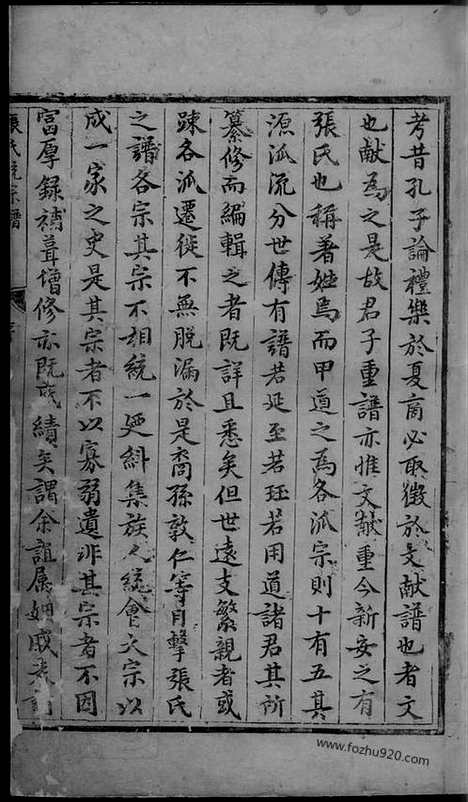 考昔孔子論禮樂於夏商必取徵於文献譜也者文
也献為之是故君子重譜亦惟文献重今新安之有
張氏也稱著姓焉而甲道之為各泒宗則十有五其
源泒流分世傳有譜若延至若珏若用道諸君其所
纂修而編輯之者既詳且悉矣但世遠支繁親者或
踈各泒遷徙不無脱漏於是裔孫敦仁等目擊張氏
之譜各宗其宗不相統一爰糾集族人統會大宗以
成一家之史是其宗者不以寡弱遺非其宗者不因
富厚録補葺增修亦既成績矣謂余誼属姻戚
張氏統宗譜
www.fozhu920.com